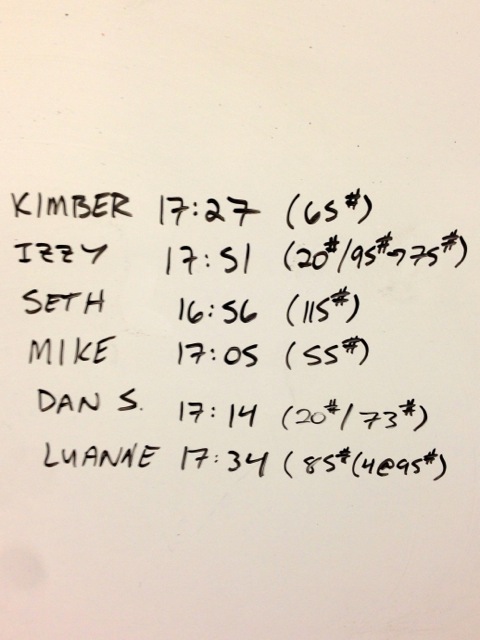 KIMBER 17:27 (65#)
IZZY 17:51 (20#/95#→75#)
SETH 16:56 (115#)
MIKE 17:05 (55#)
DAN S. 17:14 (20#/73#)
LUANNE 17:34 (85#(4@95#)